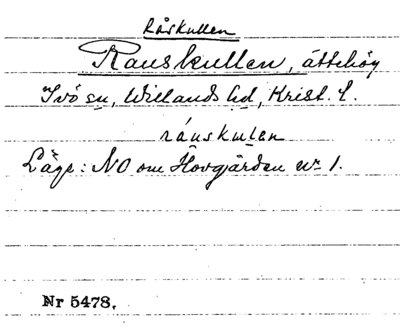 Råskullen
Rauskullen, ättehög
Ivö sn, Willands hd, Krist. l.
ráuskulen
Läge: NO om Hovgården nr 1.
Nr 5478.